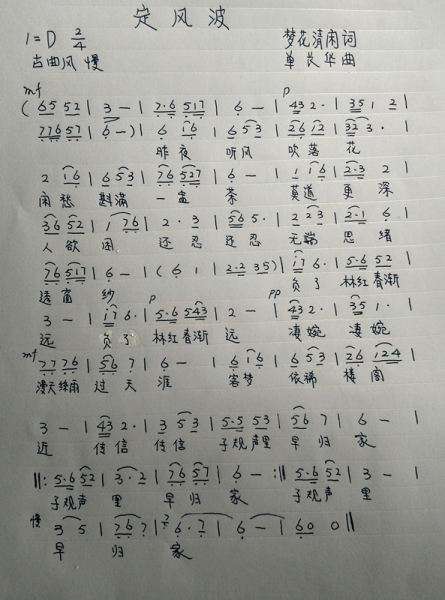 定风波
1=D 2/4 梦花清闲词
古曲风 慢 单长华曲
mf p
(65 52 | 3 - | 2·6 517 | 6 - | 43 2· | 35 1 2 |
776 57 | 6 -) | 6 16 | 6 5 3 | 26 12 | 32 3· |
昨夜 听风 吹落 花
2 16 | 6 5 3 | 76 527 | 6 - | 1 1 6 | 2·3 2 |
闲愁 斟满 一盏 茶 莫道 更深
36 52 | 1 76 | 2·3 | 56 5· | 2 23 | 2·1 6 |
人欲困 还忍 还忍 无端 思绪
76 517 | 6 - | (6 1 | 2·2 35) | 17 6· | 5·6 52 |
透窗纱 负了 林红春渐
p pp
3 - | 17 6· | 5·6 543 | 2 - | 43 2· | 35 1· |
远 负了 林红春渐 远 凄婉 凄婉
mf
77 76 | 56 7 | 6 - | 6 16 | 6 5 3 | 26 124 |
漫天绿雨 过天涯 客梦 依稀 楼阁
3 - | 43 2· | 3 5 3 | 5·5 53 | 56 7 | 6 - |
近 传信 传信 子规声里 早归 家
‖: 5·6 52 | 3·2 | 76 57 | 6 - :‖ 5·6 52 | 3 - |
子规声 里 早归 家 子规声 里
慢 3 5 | 76 7 | 6·7 | 6 - | 60 0 ‖
早 归 家